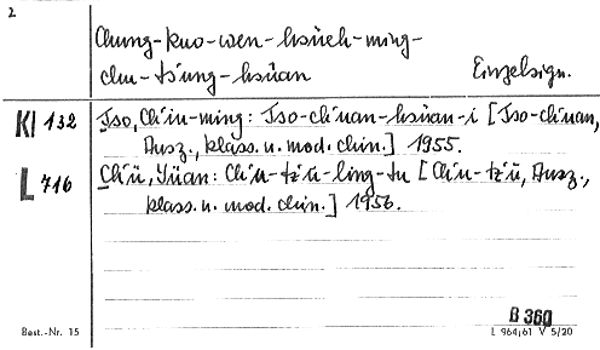 2
Chung-kuo-wen-hsüeh-ming-
chu-ts'ung-hsüan Einzelsign.
Kl 132 Tso, Ch'iu-ming: Tso-ch'uan-hsüan-i [Tso-ch'uan,
Ausz., klass. u. mod. chin.] 1955.
L 716 Ch'ü, Yüan: Ch'u-tz'ŭ-ling-tu [Ch'u-tz'ŭ, Ausz.,
klass. u. mod. chin.] 1956.
B 360
Best.-Nr. 15 L 964/61 V 5/20